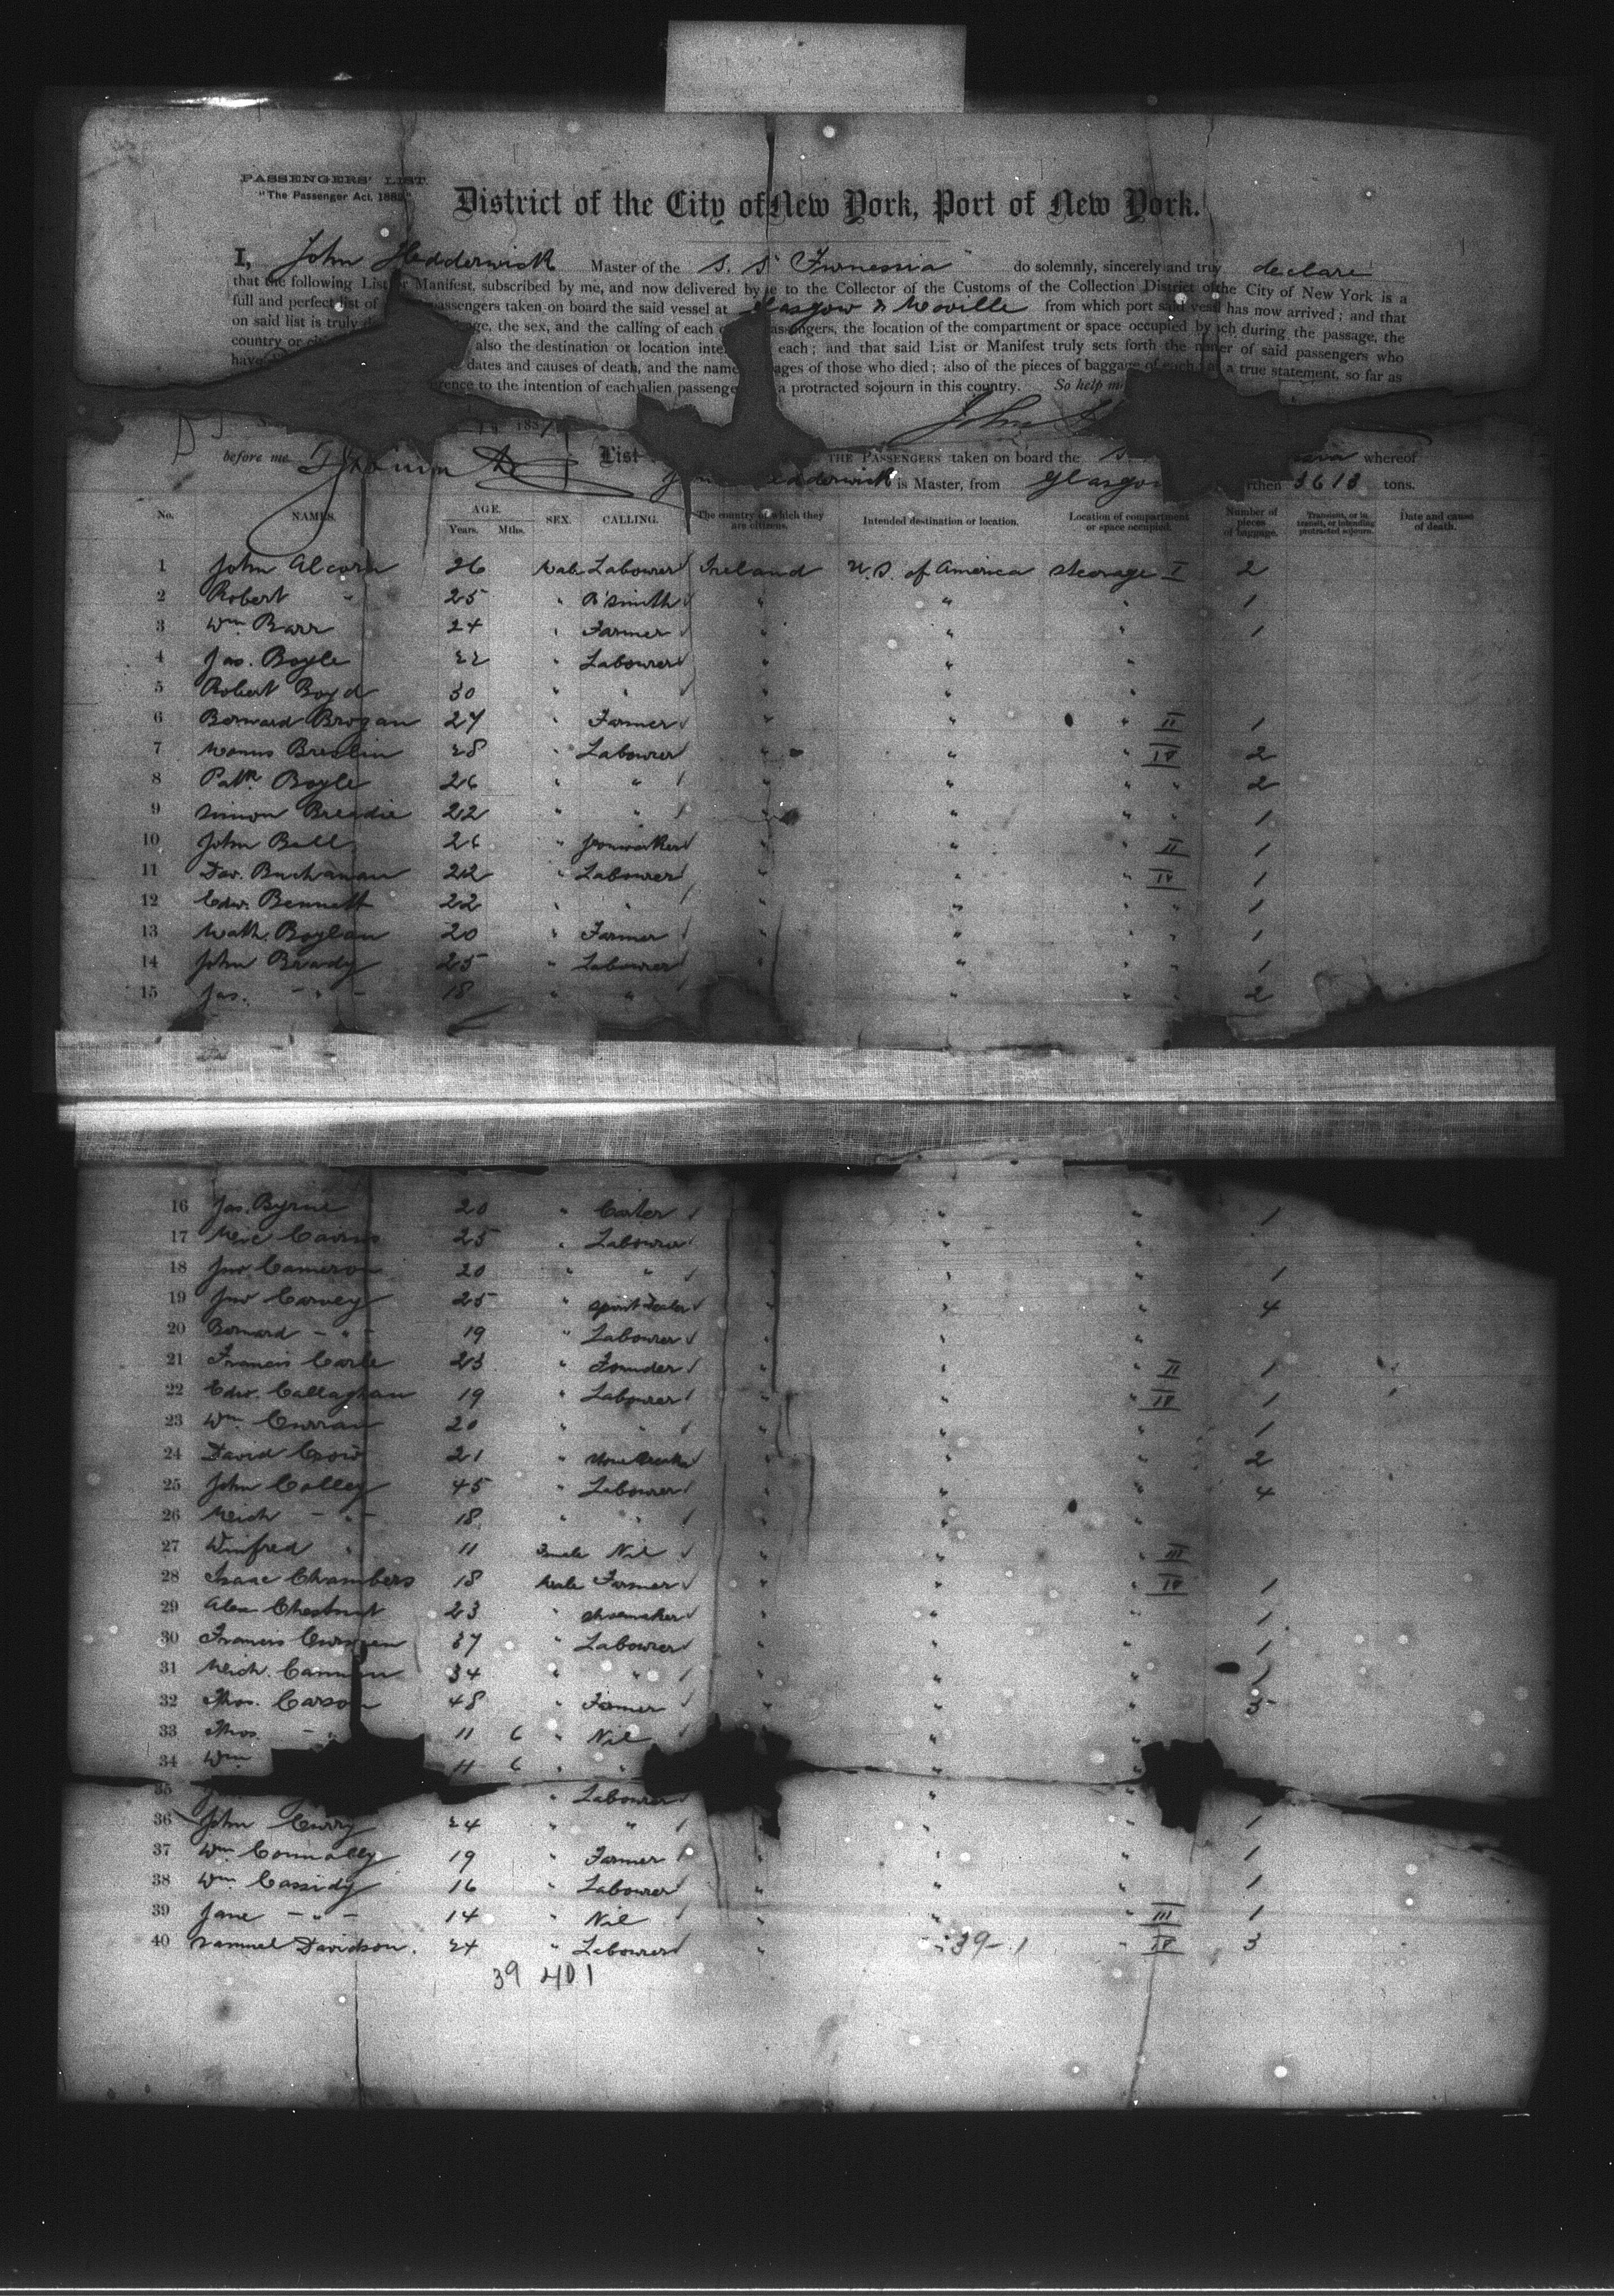 PASSENGERS' LIST.
"The Passenger Act, 1882"
District of the City of New York, Port of New York.
I, John Hedderwick Master of the S. S. "Furnessia" do solemnly, sincerely and truly declare
that the following List or Manifest, subscribed by me, and now delivered by me to the Collector of the Customs of the Collection District of the City of New York is a
full and perfect list of passengers taken on board the said vessel at Glasgow & Moville from which port said vessel has now arrived; and that
on said list is truly age, the sex, and the calling of each passengers, the location of the compartment or space occupied by each during the passage, the
country or also the destination or location each; and that said List or Manifest truly sets forth the of said passengers who
have dates and causes of death, and the ages of those who died; also of the pieces of baggage of each a true statement, so far as
to the intention of each alien a protracted sojourn in this country. So help
John
before me List THE PASSENGERS taken on board the S. whereof
Hedderwick is Master, from Glasgow 3613 tons.
No. NAMES. AGE. Years. Mths. SEX. CALLING. The country of which they are citizens. Intended destination or location. Location of compartment or space occupied. Number of pieces of baggage. Transient, or in transit, or intending protracted sojourn. Date and cause of death.
1 John Alcorn 26 Male Labourer Ireland U.S. of America Steerage I 2
2 Robert " 25 " B'smith " " " 1
3 Wm Barr 24 " Farmer " " " 1
4 Jas. Boyle 22 " Labourer " " "
5 Robert Boyd 30 " " " " "
6 Bernard Brogan 27 " Farmer " " " II 1
7 Manus Breslin 28 " Labourer " " " IV 2
8 Patk Boyle 26 " " " " " " 2
9 Simon Breadie 22 " " " " " " 1
10 John Bell 26 " Ironworker " " " II 1
11 Dav. Buchanan 22 " Labourer " " " IV 1
12 Edw. Bennett 22 " " " " " " 1
13 Math. Boylan 20 " Farmer " " " " 1
14 John Brady 25 " Labourer " " " " 1
15 Jas. - " - 18 " " " " " 2
16 Jas. Byrne 20 " Carter " " 1
17 Mic Cairns 25 " Labourer " " "
18 Jno Cameron 20 " " " " " 1
19 Jno Carvey 25 " Spirit Dealer " " " 4
20 Bernard - " - 19 " Labourer " " "
21 Francis Carle 23 " Founder " " " II 1
22 Edw. Callaghan 19 " Labourer " " " IV 1
23 Wm Curran 20 " " " " " 1
24 David Crow 21 " " " " 2
25 John Colley 45 " Labourer " " " 4
26 Mich - " - 18 " " " " "
27 Winfred " 11 Female Nil " " " III
28 Isaac Chambers 18 Male Farmer " " " IV 1
29 Alex Chestnut 23 " Shoemaker " " " 1
30 Francis 37 " Labourer " " " 1
31 Mich. Cannon 34 " " " " " 1
32 Thos. Carson 48 " Farmer " " " 3
33 Thos - " 11 6 " Nil " "
34 Wm 11 6 " " "
35 " Labourer "
36 John Curry 24 " " " " " 1
37 Wm Connolly 19 " Farmer " " " 1
38 Wm Cassidy 16 " Labourer " " " 1
39 Jane - " - 14 " Nil " " " III 1
40 Samuel Davidson. 24 " Labourer " " " IV 3
39-1
39 40 1